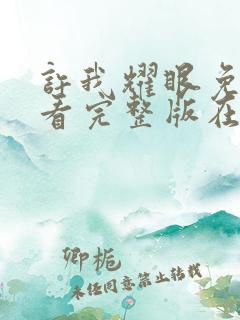 許我耀眼免
看完整版在
卿栀
未经同意禁止转载